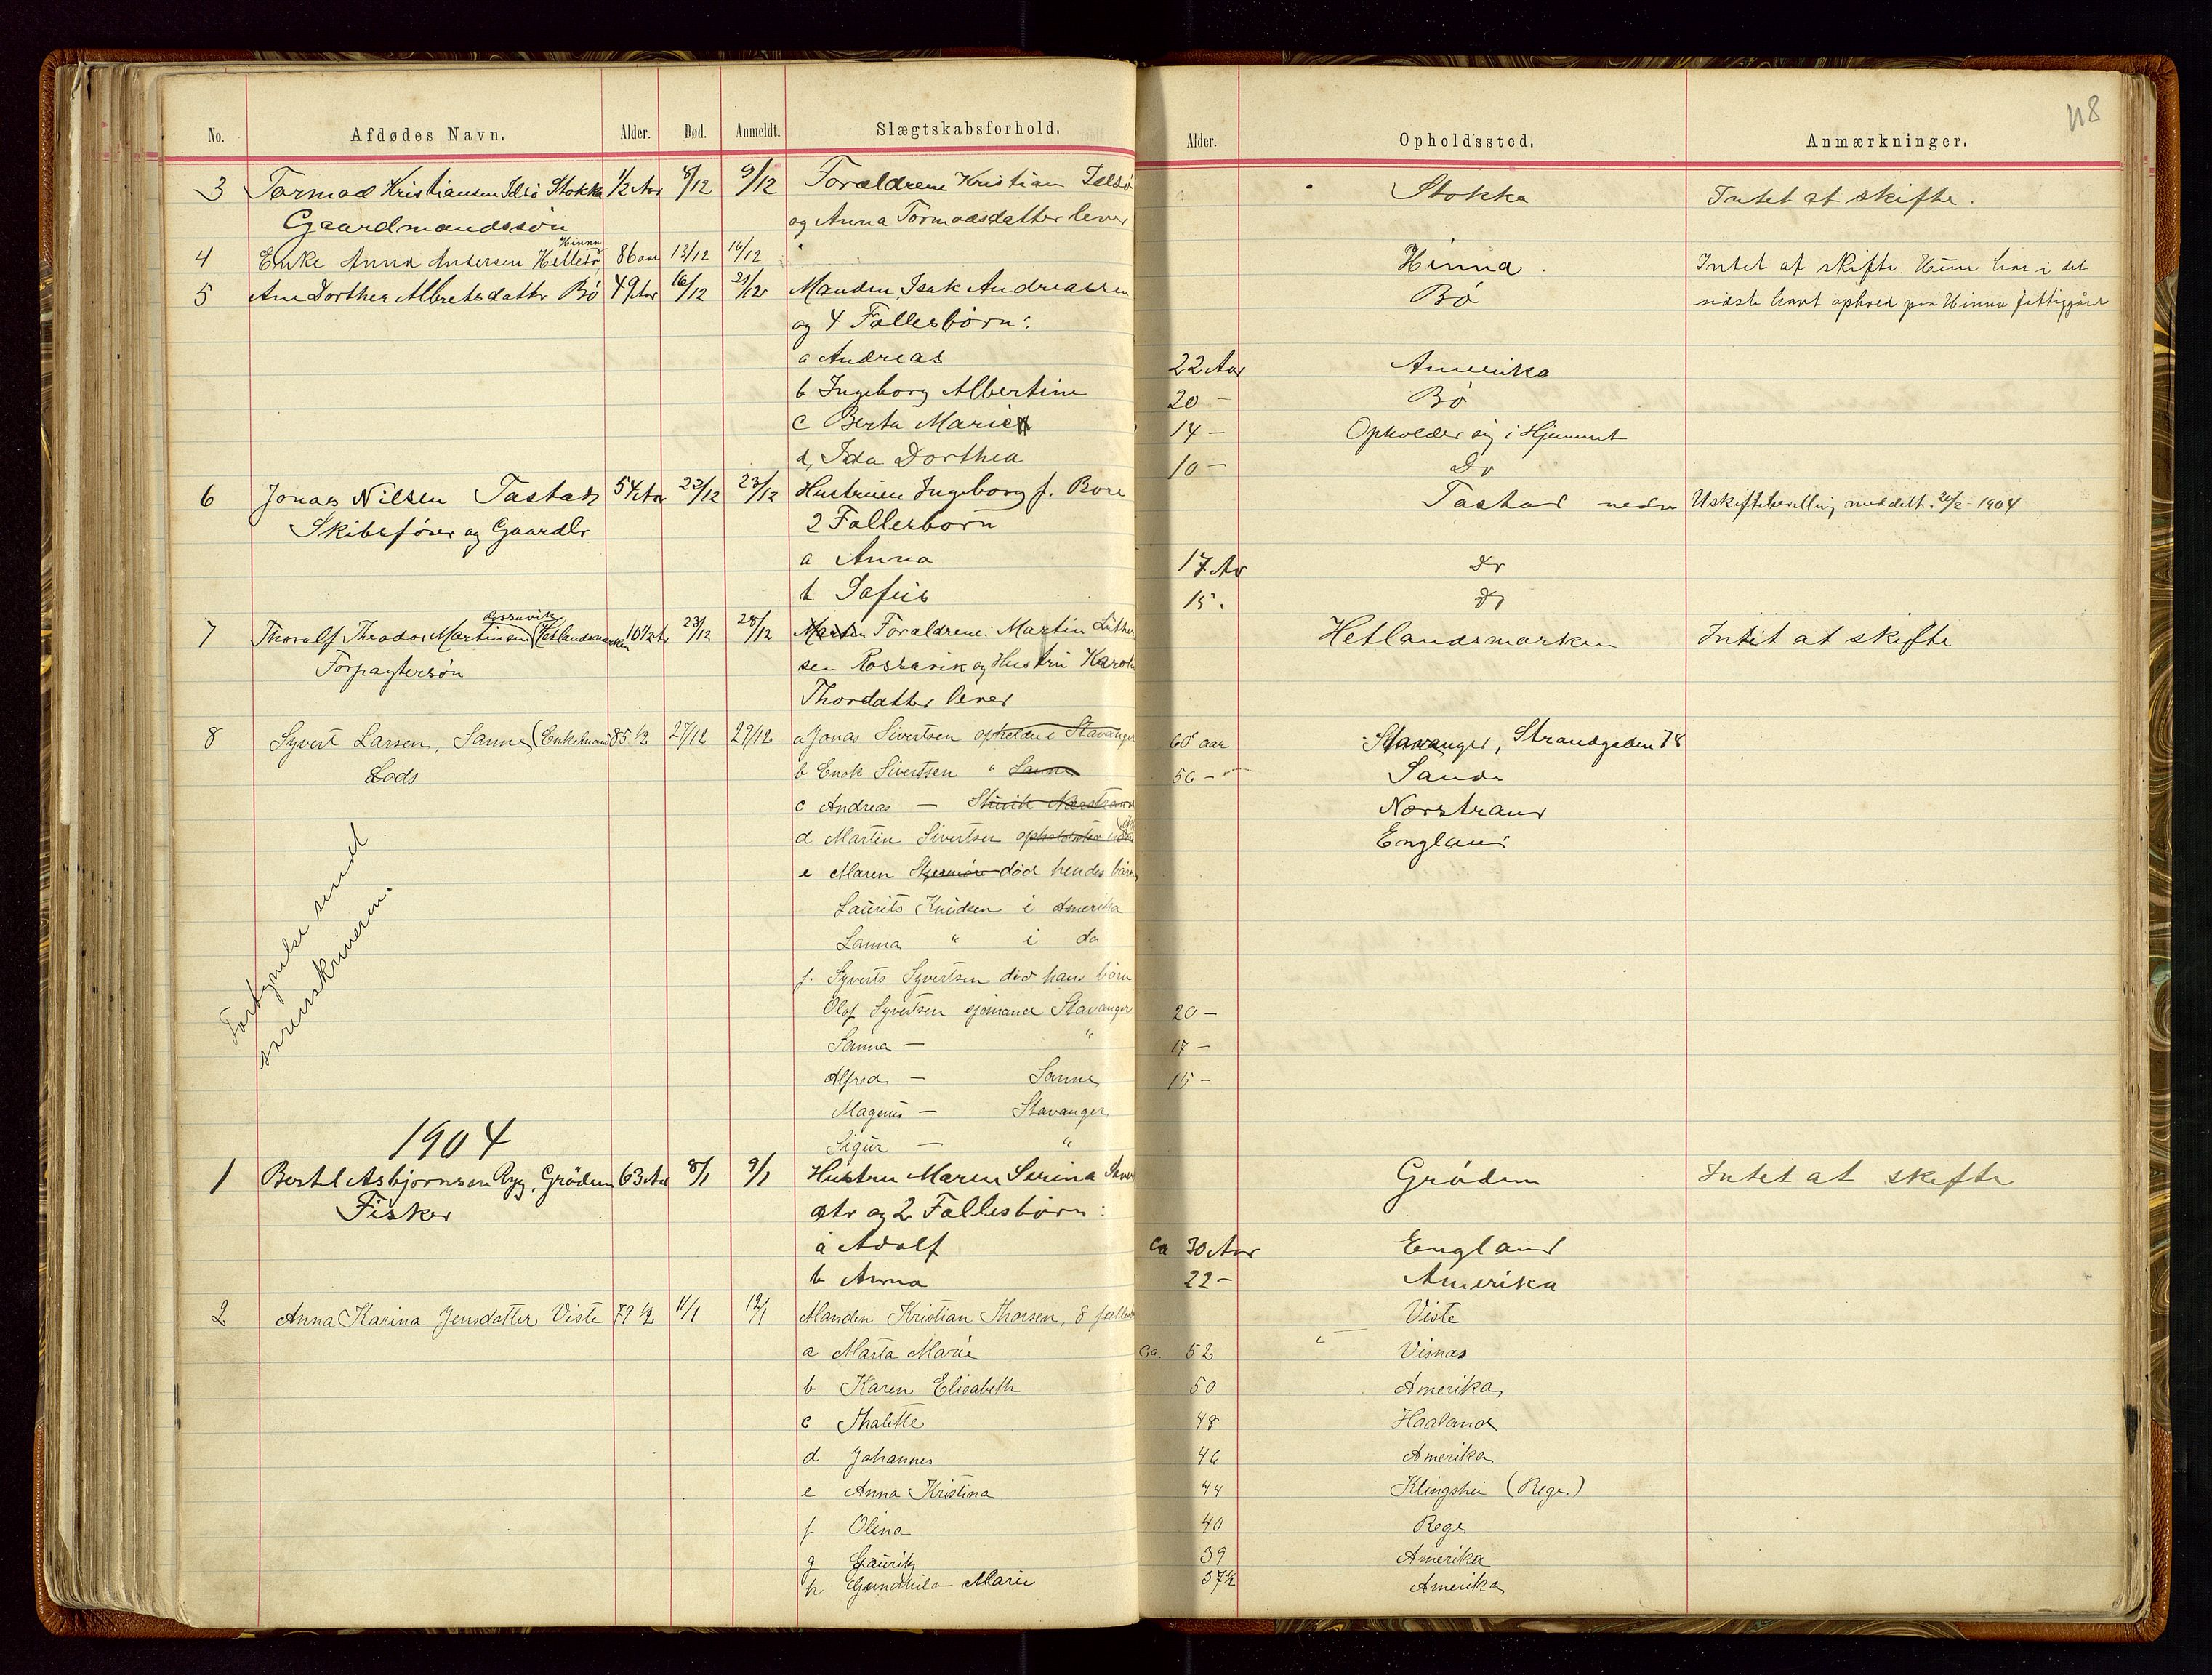 118
No. Afdødes Navn. Alder. Død. Anmeldt. Slægtskabsforhold. Alder. Opholdssted. Anmærkninger.
3 Tormod Kristiansen Idsö Stokka 1/2 Aar 8/12 9/12 Forældrene Kristian Idsö Stokka Intet at skifte.
Gaardmandssön og Anna Tormodsdatter lever
Hinna
4 Enke Anna Andersen 86 aar 13/12 16/12 Hinna. Intet at skifte. Hun har i det
5 Ane Dorthea Albretsdatter Bö 49 Aar 16/12 21/12 Manden Isak Andreassen Bö sidste havt ophold paa Hinna fattiggård
og 4 Fællesbörn:
a Andreas 22 Aar Amerika
b Ingeborg Albertine 20 - Bö
c Berta Marie 14 - Opholder sig i Hjemmet
d, Ida Dorthea 10 - Do
6 Jonas Nilsen Tastad 54 Aar 22/12 23/12 Hustruen Ingeborg f. Bore Tastad nedre Uskiftebevilling meddelt 20/2 - 1904
Skibsfører og Gaardbr 2 Fællesbörn
a Anna 17 Aar Do
b Sofie 15. Do
7 Thoralf Theodor Martinsen (Hetlandsmarken 10 1/2 Aar 23/12 28/12 Forældrene: Martin Lüther Hetlandsmarken Intet at skifte
Forpaktersön sen Rossavik og Hustru Karoli
Thordatter lever
8 Syvert Larsen, Sanne (Enkemand 85 1/2 27/12 29/12 a Jonas Sivertsen opholder i Stavanger 60 aar Stavanger, Strandgaden 78
Lods b Enok Sivertsen " Sanne 56 - Sande
c Andreas — Nærstrand Nærstrand
d Martin Sivertsen England
e Maren död hendes börn
Laurits Knudsen i Amerika
Lanna " i do
f. Syverts Syvertsen död hans börn
Olaf Syvertsen sjømand Stavanger 20 -
Sanna — " 17 -
Alfred — Sanne 15 -
Magnus — Stavanger
Sigur — "
Fortegnelse sendt
sorenskriveren.
1904
1 Bertel Asbjørnsen Ryg, Grödem 63 Aar 8/1 9/1 Hustru Maren Serina Grödem Intet at skifte
Fisker dtr og 2 Fællesbörn:
a Adolf ca 30 Aar England
b Anna 22 - Amerika
2 Anna Karina Jensdatter Viste 79 1/2 11/1 12/1 Manden Kristian Thorsen, 8 Viste
a Marta Marie ca. 52 Visnæs
b Karen Elisabeth 50 Amerika
c Thalette 48 Haaland
d Johannes 46 Amerika
e Anna Kristina 44 Klingshei (Rege)
f Olina 40 Rege
g Laurits 39 Amerika
h Gundhild Marie 37 1/2 Amerika